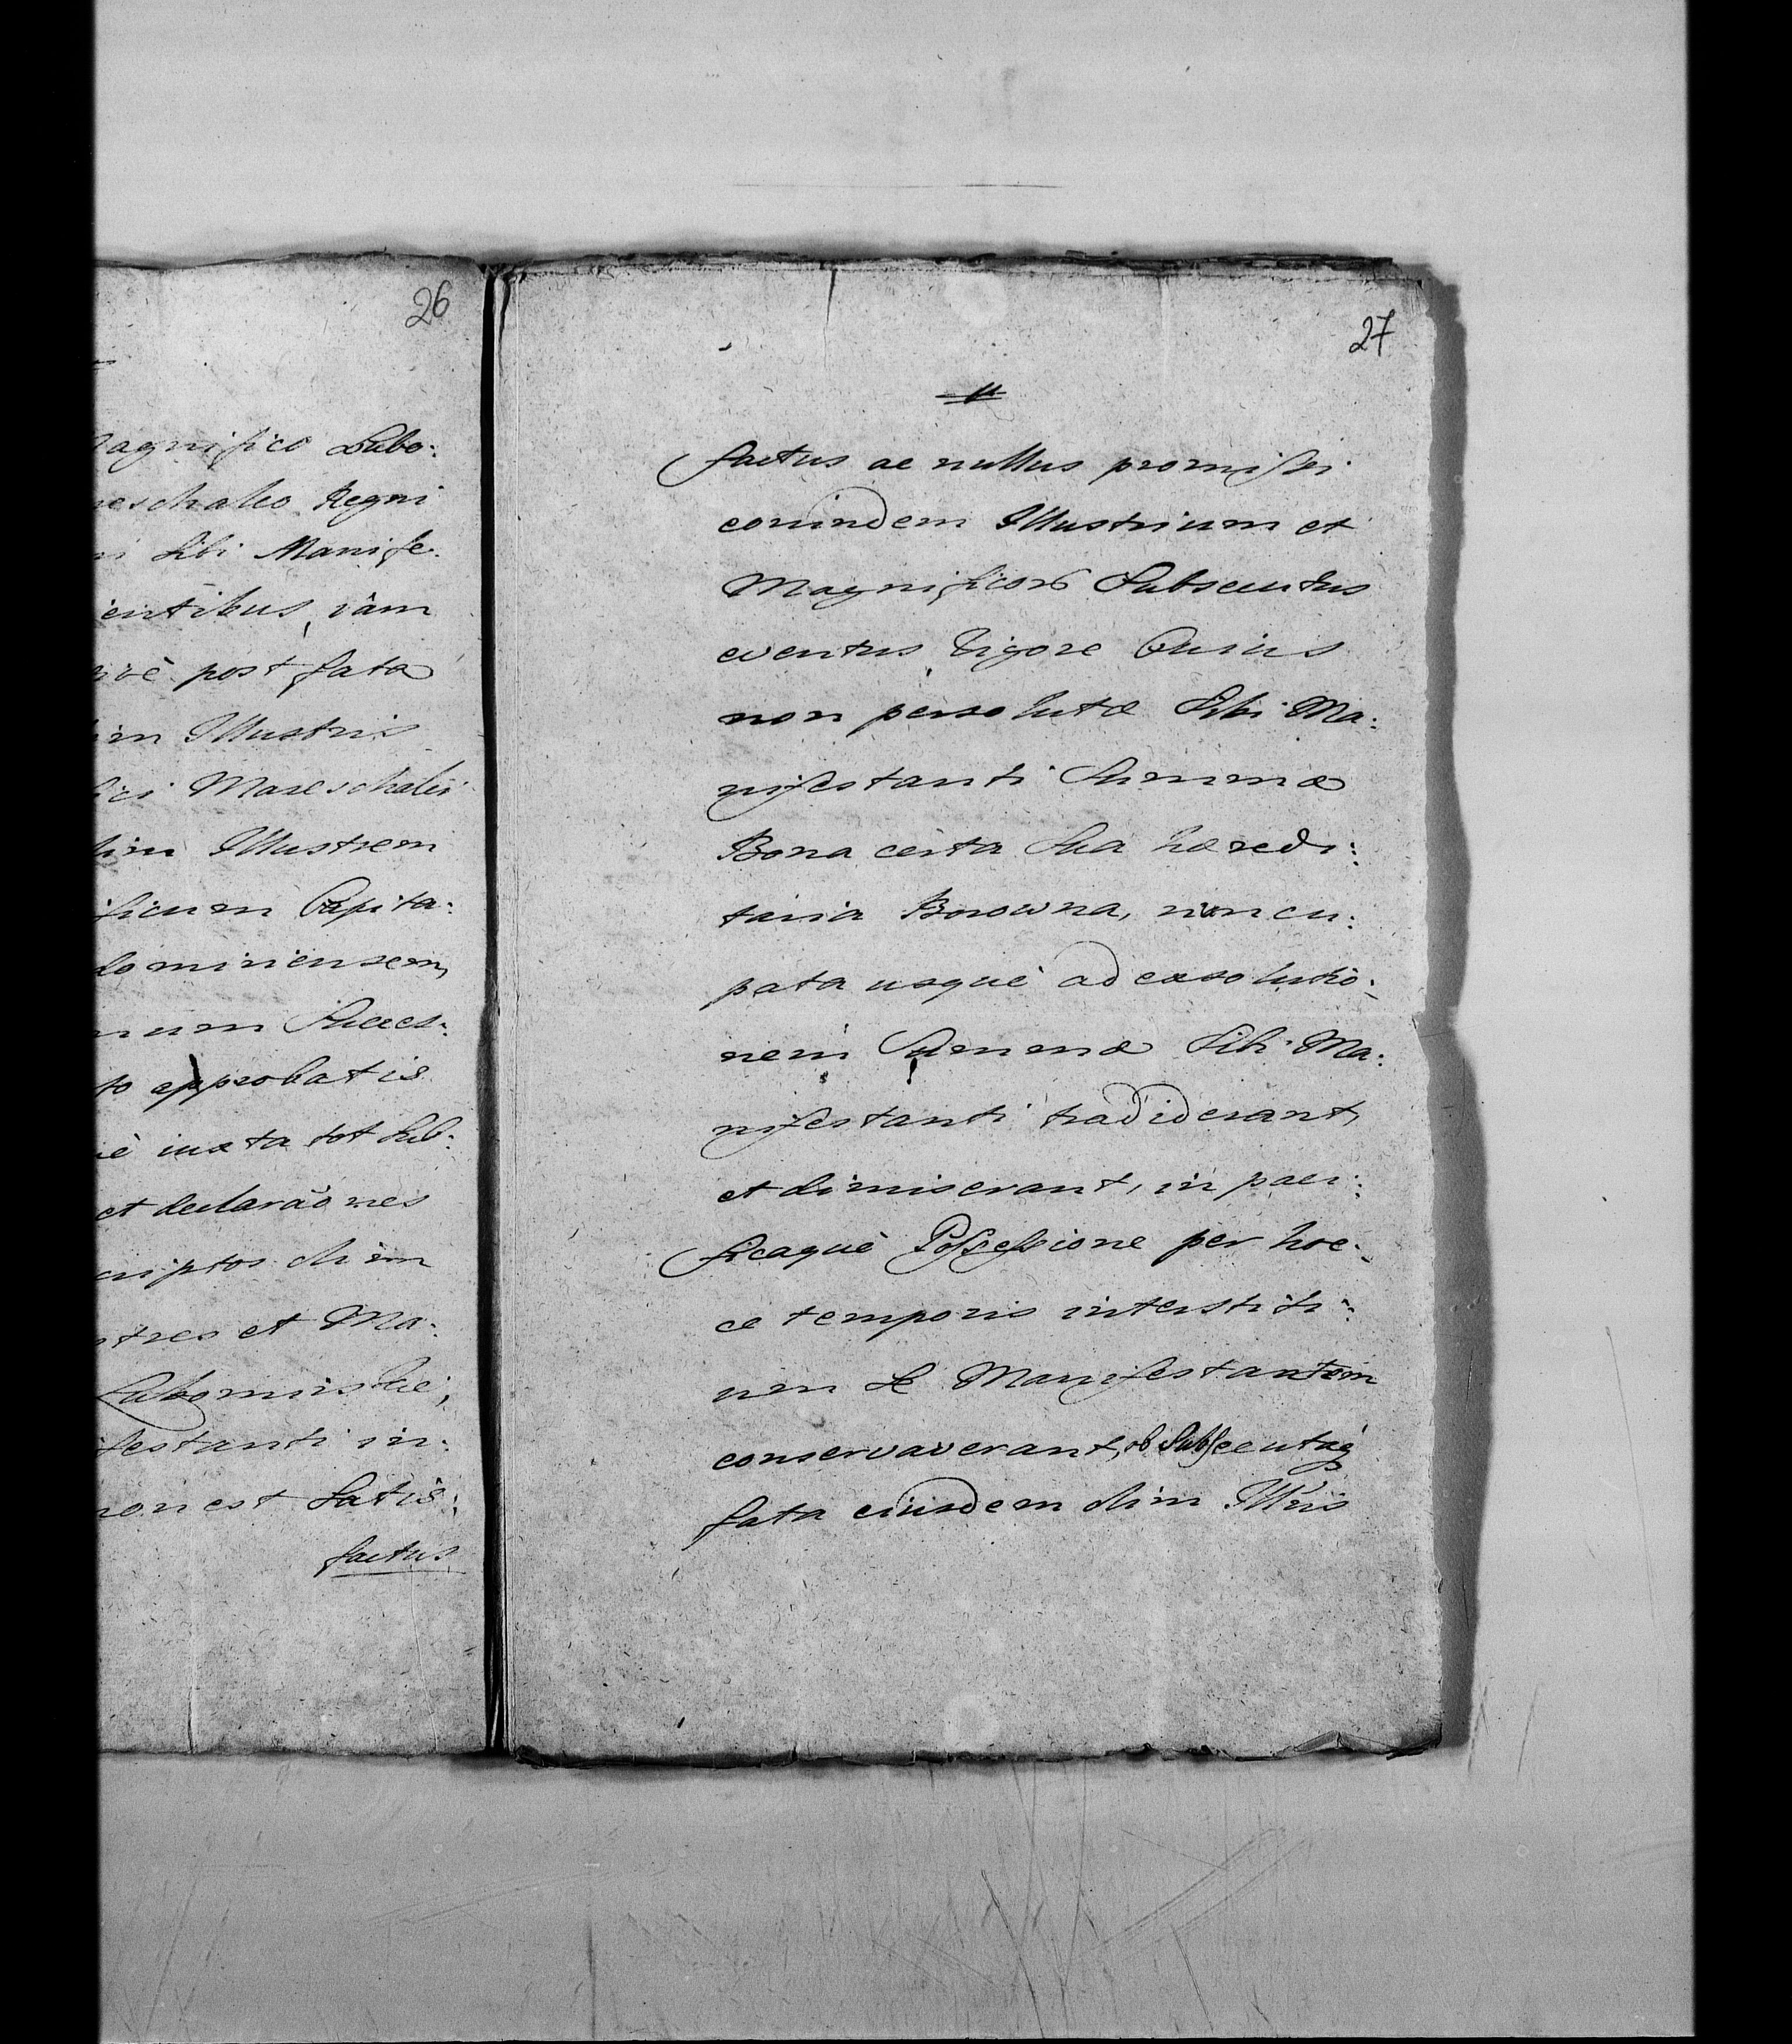 26
agnifico Lubo:
eschalco Regni
i Sibi Manife:
entibus, iàm
vè post fata
im Illustris
ici Mareschalci
lim Illustrem
ficum Capita:
lominiensem,
num Succes:
to approbatis
è iuxta tot Sub:
et declaraõnes
criptos olim
stres et Ma:
Lubomirskie,
festanti in:
non est Satis:
factus
27
factus ac nullus promissi
eorundem Illustrium et
Magnificor̃ Subsecutus
eventus, Vigore Cuius
non persolutæ Sibi Ma:
nifestanti Summæ
Bona certa Sua hæredi:
taria Borowna, nuncu:
pata usquè ad exsolutio:
nem Summæ Sibi Ma:
nifestanti tradiderant,
et dimiserant, in paci:
ficaquè Possessione per hoc:
ce temporis interstiti:
um Se Manifestantem
conservaverant, ob Subsecutaq̃
fata eiusdem olim Illris